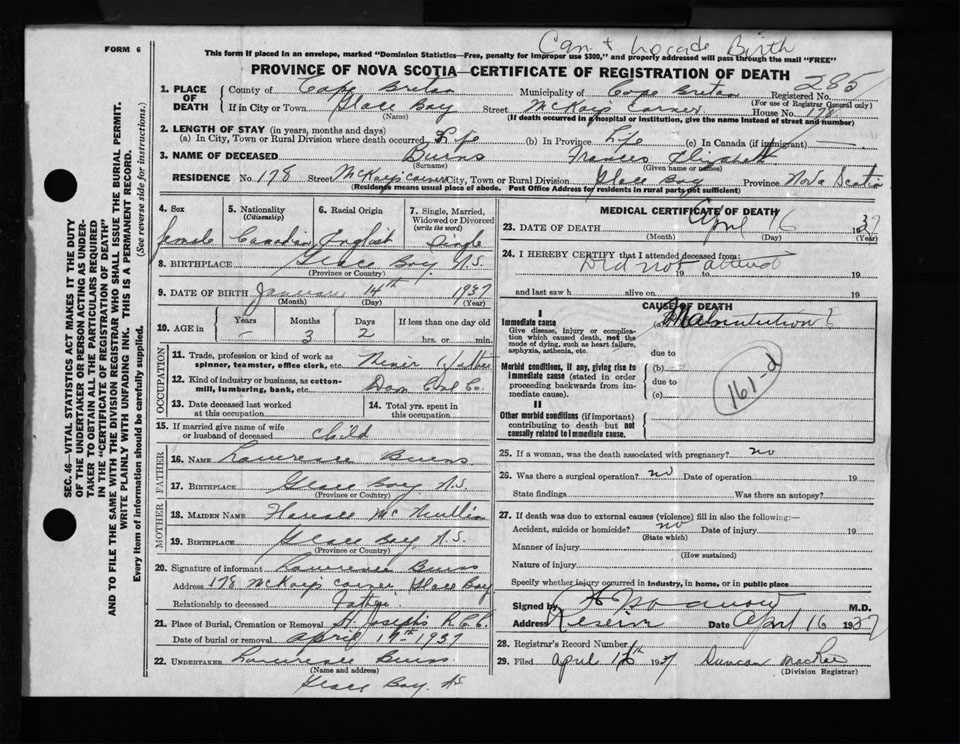 Can + Birth
FORM 6
This form if placed in an envelope, marked "Dominion Statistics—Free, penalty for improper use $300," and properly addressed will pass through the mail "FREE"
PROVINCE OF NOVA SCOTIA—CERTIFICATE OF REGISTRATION OF DEATH
285
1. PLACE OF DEATH
County of Cape Breton Municipality of Cape Breton Registered No.
(For use of Registrar General only)
If in City or Town Glace Bay Street McKays corner House No. 178
(Name) (If death occurred in a hospital or institution, give the name instead of street and number)
2. LENGTH OF STAY (in years, months and days)
(a) In City, Town or Rural Division where death occurred Life (b) In Province Life (c) In Canada (if immigrant) —
3. NAME OF DECEASED Burns Frances Elizabeth
(Surname) (Given name or names)
RESIDENCE No. 178 Street McKays corner City, Town or Rural Division Glace Bay Province Nova Scotia
(Residence means usual place of abode. Post Office Address for residents in rural parts not sufficient)
4. Sex female
5. Nationality (Citizenship) Canadian
6. Racial Origin English
7. Single, Married, Widowed or Divorced (write the word) Single
8. BIRTHPLACE Glace Bay N.S.
(Province or Country)
9. DATE OF BIRTH January 14th 1937
(Month) (Day) (Year)
10. AGE in Years Months Days If less than one day old
— 3 2 hrs. or min.
OCCUPATION
11. Trade, profession or kind of work as spinner, teamster, office clerk, etc.
12. Kind of industry or business, as cotton-mill, lumbering, bank, etc. Dom Coal Co.
13. Date deceased last worked at this occupation
14. Total yrs. spent in this occupation
15. If married give name of wife or husband of deceased child
FATHER
16. NAME Lawrence Burns
17. BIRTHPLACE Glace Bay N.S.
(Province or Country)
MOTHER
18. MAIDEN NAME Florence McMullin
19. BIRTHPLACE Glace Bay N.S.
(Province or Country)
20. Signature of informant Lawrence Burns
Address 178 McKays corner Glace Bay
Relationship to deceased Father
21. Place of Burial, Cremation or Removal St Josephs R.C.C.
Date of burial or removal April 17th 1937
22. UNDERTAKER Lawrence Burns
(Name and address)
Glace Bay NS
MEDICAL CERTIFICATE OF DEATH
23. DATE OF DEATH April 16 1937
(Month) (Day) (Year)
24. I HEREBY CERTIFY that I attended deceased from:
Did not attend
19 to 19
and last saw h alive on 19
CAUSE OF DEATH
I
Immediate cause
Give disease, injury or complication which caused death, not the mode of dying, such as heart failure, asphyxia, asthenia, etc.
(a) Malnutrition ?
due to
Morbid conditions, if any, giving rise to immediate cause (stated in order proceeding backwards from immediate cause).
(b)
due to
(c)
161-d
II
Other morbid conditions (if important) contributing to death but not causally related to immediate cause.
25. If a woman, was the death associated with pregnancy? no
26. Was there a surgical operation? no Date of operation 19
State findings Was there an autopsy?
27. If death was due to external causes (violence) fill in also the following:—
Accident, suicide or homicide? no Date of injury 19
(State which)
Manner of injury
(How sustained)
Nature of injury
Specify whether injury occurred in industry, in home, or in public place
Signed by M.D.
Address Reserve Date April 16 1937
28. Registrar's Record Number
29. Filed April 1937 Duncan MacRae
(Division Registrar)
SEC. 46—VITAL STATISTICS ACT MAKES IT THE DUTY
OF THE UNDERTAKER OR PERSON ACTING AS UNDER-
TAKER TO OBTAIN ALL THE PARTICULARS REQUIRED
IN THE "CERTIFICATE OF REGISTRATION OF DEATH"
AND TO FILE THE SAME WITH THE DIVISION REGISTRAR WHO SHALL ISSUE THE BURIAL PERMIT.
WRITE PLAINLY WITH UNFADING INK. THIS IS A PERMANENT RECORD.
Every item of information should be carefully supplied. (See reverse side for instructions.)